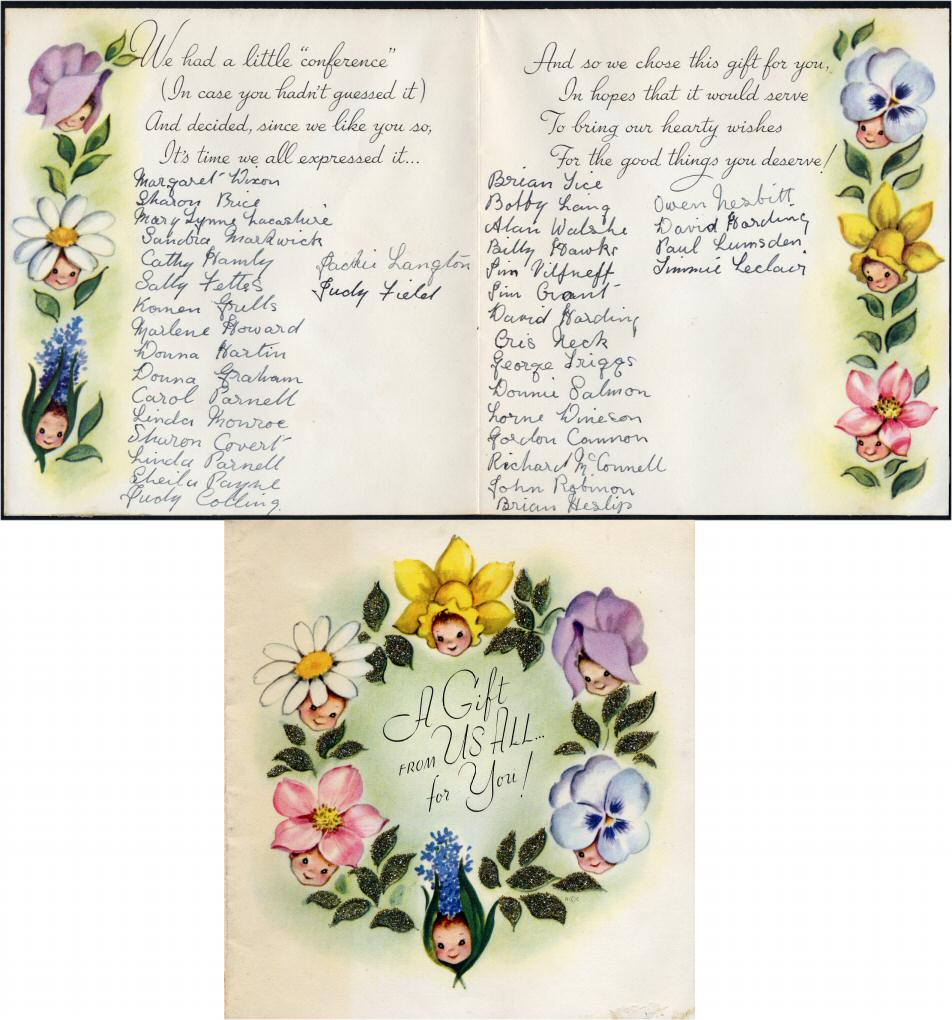 We had a little "conference"
(In case you hadn't guessed it)
And decided, since we like you so,
It's time we all expressed it...
Margaret Wixon
Sharon Price
Mary Lynne Lacashire
Sandra Markwick
Cathy Hamly
Sally Fettes
Karen Grills
Marlene Howard
Donna Martin
Donna Graham
Carol Parnell
Linda Monroe
Sharon Covert
Linda Parnell
Sheila Payne
Judy Colling
Jackie Langton
Judy Field
And so we chose this gift for you,
In hopes that it would serve
To bring our hearty wishes
For the good things you deserve!
Brian Tice
Bobby Lang
Alan Walshe
Billy Hawks
Jim
Jim Grant
David Harding
Cris Neck
George Griggs
Donnie Salmon
Lorne
Gordon Cannon
Richard McConnell
John Robinson
Brian Heslip
Owen Nesbitt
David Harding
Paul Lumsden
Jimmie Leclair
A Gift
FROM US ALL...
for You!